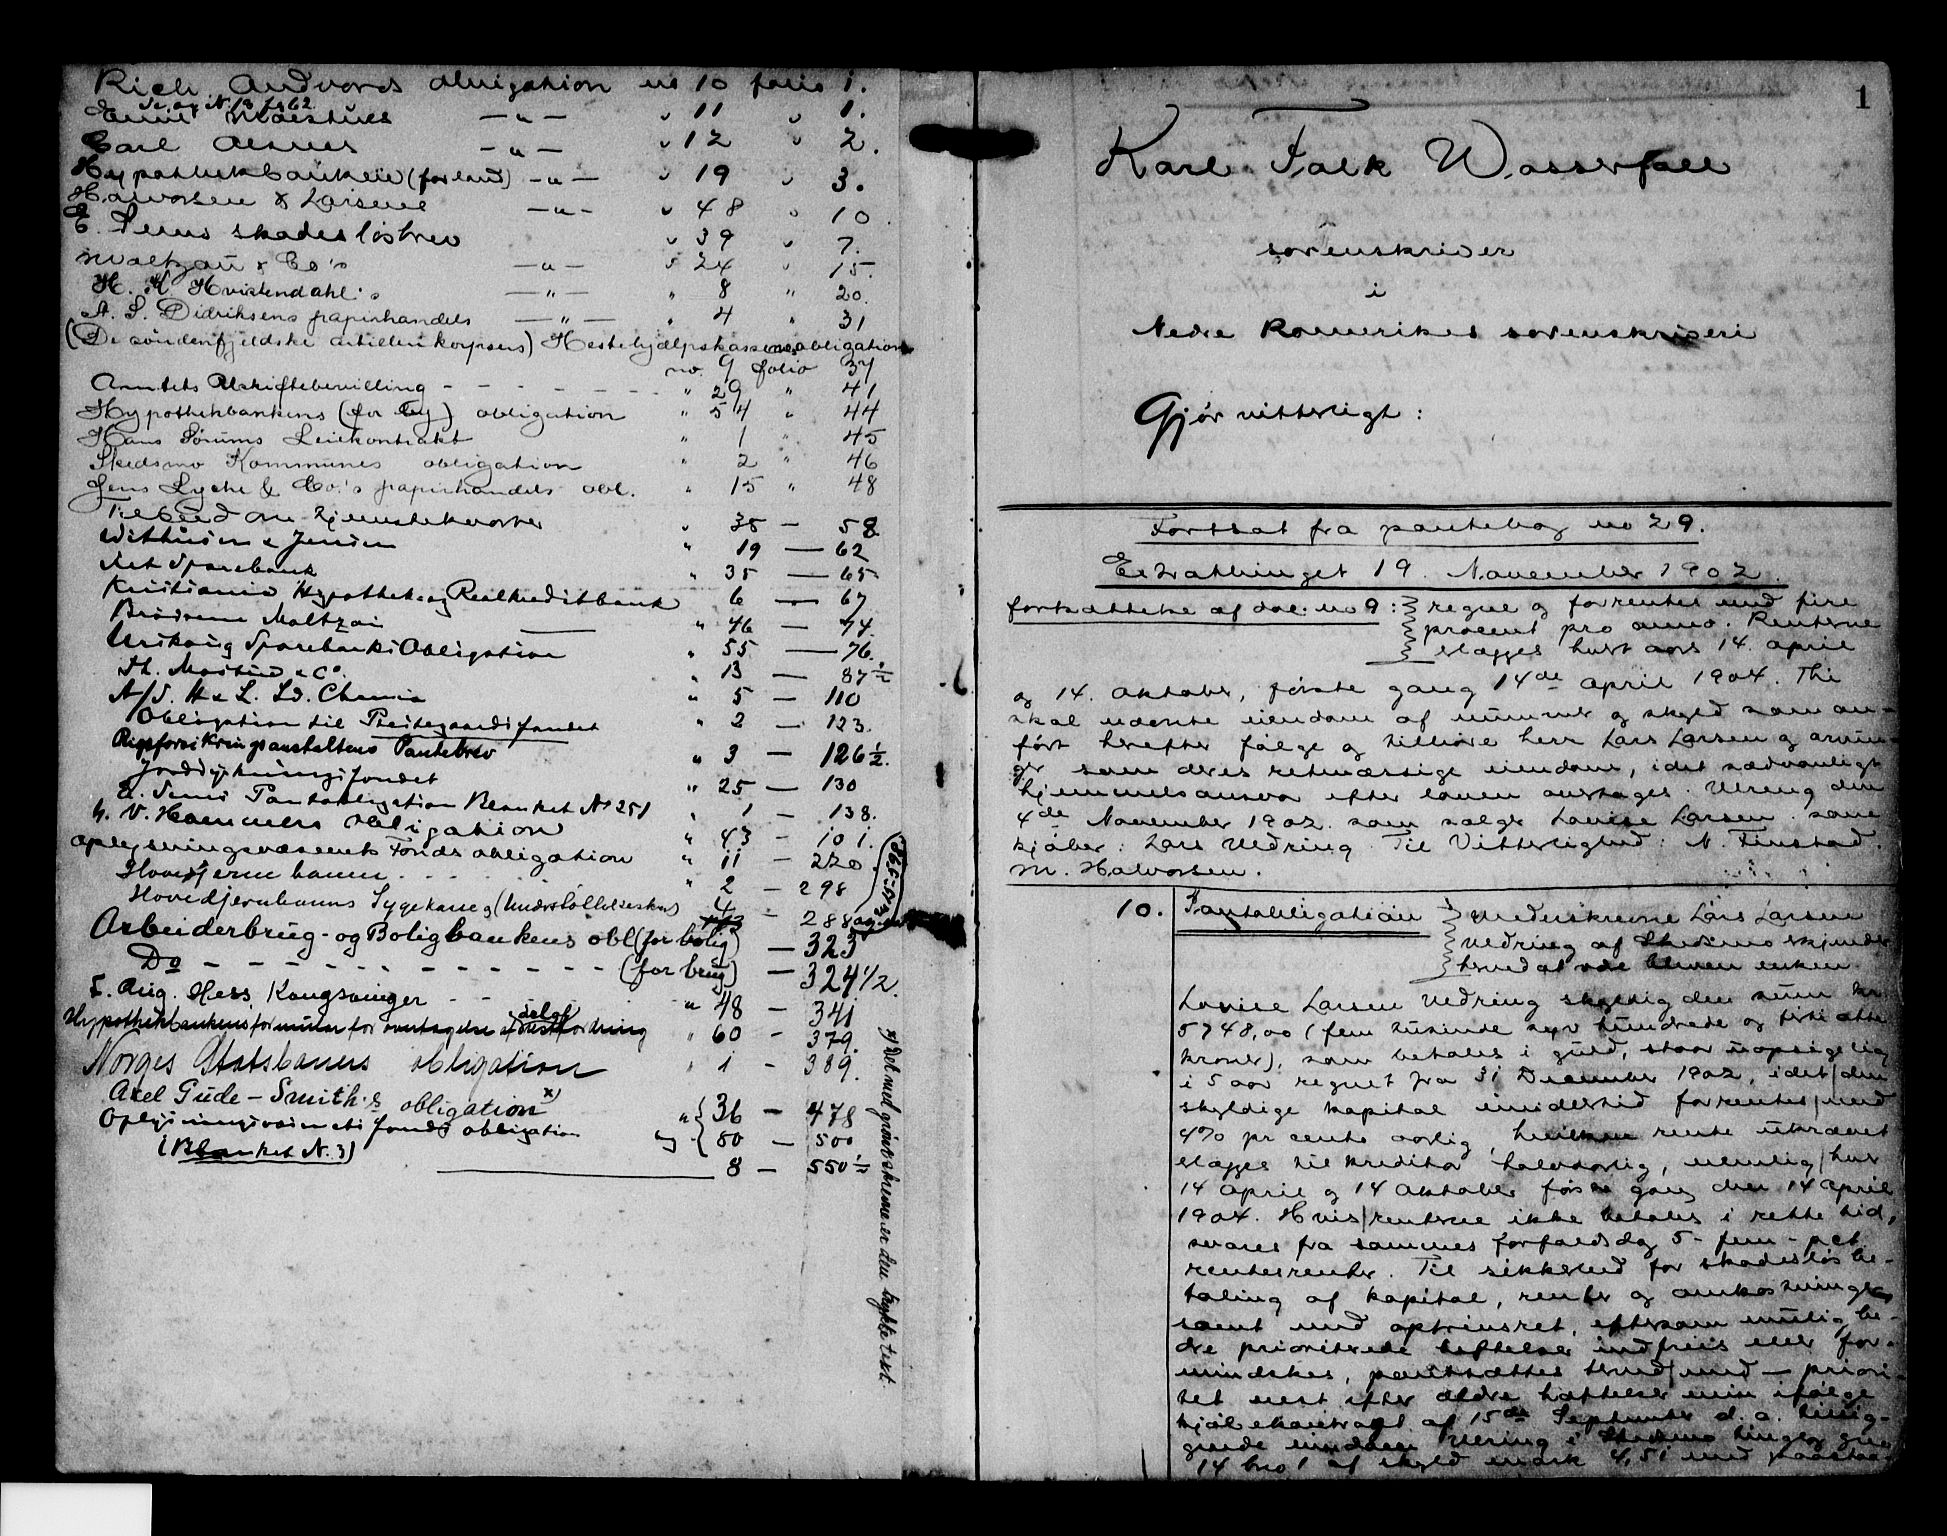 Rich Andvords obligation no 10 folio 1.
Se og N. 13 fo 62
Emil Moestues — " — " 11 " 1.
Carl — " — " 12 " 2.
Hypothekbankens (for land) — " — " 19 " 3.
Halvorsen & Larsens — " — " 48 " 10.
E. Sems skadesløsbrev " 39 " 7.
Maltzau & Co's — " — " 24 " 15.
H. H. Hvistendahl's — " — " 8 " 20.
A. S. Didriksens papirhandels — " — " 4 " 31
(De søndenfjeldske artillerikorpsens) Hestehjælpskassens obligation
no. 9 folio 37
Amtets Udskiftebevilling - - - " 29 " 41
Hypothekbankens (for By) obligation " 54 " 44
Hans Sørums Leiekontrakt " 1 " 45
Skedsmo Kommunes obligation " 2 " 46
Jens Lyche & Co.'s papirhandels obl. " 15 " 48
Tilbud om hjemstekvorter " 35 — 58
Withusen & Jensen " 19 — 62
Sparebank " 35 — 65
Kristiania Hypothek- og Realkreditbank 6 — 67
Brødrene Maltzau — " 46 — 74.
Urskoug Sparebanks Obligation " 55 — 76.
Th. Moestue & Co. " 13 — 87 ½
A/S. H & L. Ld. Chemia " 5 — 110
Obligation til Præstegaardsfondet " 2 — 123.
Rigsforsikringsanstaltens Pantebrev " 3 — 126½.
Jorddyrkningsfondet " 25 — 130
E. Sems Pantobligation Blanket No 251 " 1 — 138.
obligation " 43 — 101.
Oplysningsvæsenets Fonds obligation " 11 — 220
Hovedjernbanen - - - " 2 — 298
Hovedjernbanens Sygekasse (Understøttelseskas) 4 — 288
Arbeiderbrug- og Boligbankens obl (for bolig) — 323
Do - - - - - - - (for brug) — 324 1/2.
F. Aug. Hess, Kongsvinger - - " 48 — 341
delat
Hypothekbankens formular for overtagelse af restfordring " 60 — 379.
Norges Statsbaners obligation " 1 — 389.
Axel Gude-Smith's obligation x) " 36 — 478
Oplysningsvæsenets fonds obligation og 80 — 500
(Blanket N. 3) 8 — 550 ½
x) Det med grønt skrevne er den trykte text.
1
Karl Falk Wasserfall
sorenskriver
i
Nedre Romerikes sorenskriveri
Gjør vitterligt:
Fortsat fra pantebog no 29.
Extrathinget 19. November 1902.
fortsættelse af dok: no 9: regne og forrentes med fire
procent pro anno. Renterne
erlægges hvert aars 14. april
og 14. oktober, første gang 14de april 1904. Thi
skal nævnte eiendom af nummer og skyld som an-
ført herefter følge og tilhøre herr Lars Larsen og arvin-
ger som deres retmæssige eiendom, idet sædvanligt
hjemmelsansvar efter loven overtages. Ulreng den
4de November 1902. som sælger Lovise Larsen. som
kjøber: Lars Uedring. Til Vitterlighed: N. Finstad.
M. Halvorsen.
10. Pantobligation Underskrevne Lars Larsen
Vedring af Skedsmo erkjender
herved at være bleven enken
Lovise Larsen Vedring skyldig den sum kr
5748,00 (fem tusinde syv hundrede og firti otte
kroner), som betales i guld, staar uopsigelig
i 5 aar regnet fra 31 December 1902, idet den
skyldige kapital imidlertid forrentes med
4% pr cento aarlig, hvilken rente ukrævet
erlægges til kreditor halvaarlig, nemlig hver
14 april og 14 oktober første gang den 14 april
1904. Hvis renterne ikke betales i rette tid,
svares fra sammes forfaldsdag 5 - fem - pct.
rentesrenter. Til sikkerhed for skadesløs be-
taling af kapital, renter og omkostninger
samt med optrinsret, eftersom mulig be-
dre prioriterede heftelser indfries eller for-
mindskes, pantsættes herved med — priori-
tet nest efter ældre hæftelser min ifølge
kjøbekontrakt af 15de September d. a. tillig-
gende eiendom Ulreng i Skedsmo tinglag gno
14 bno 1 af skyld mark 4,51 med paastaa-